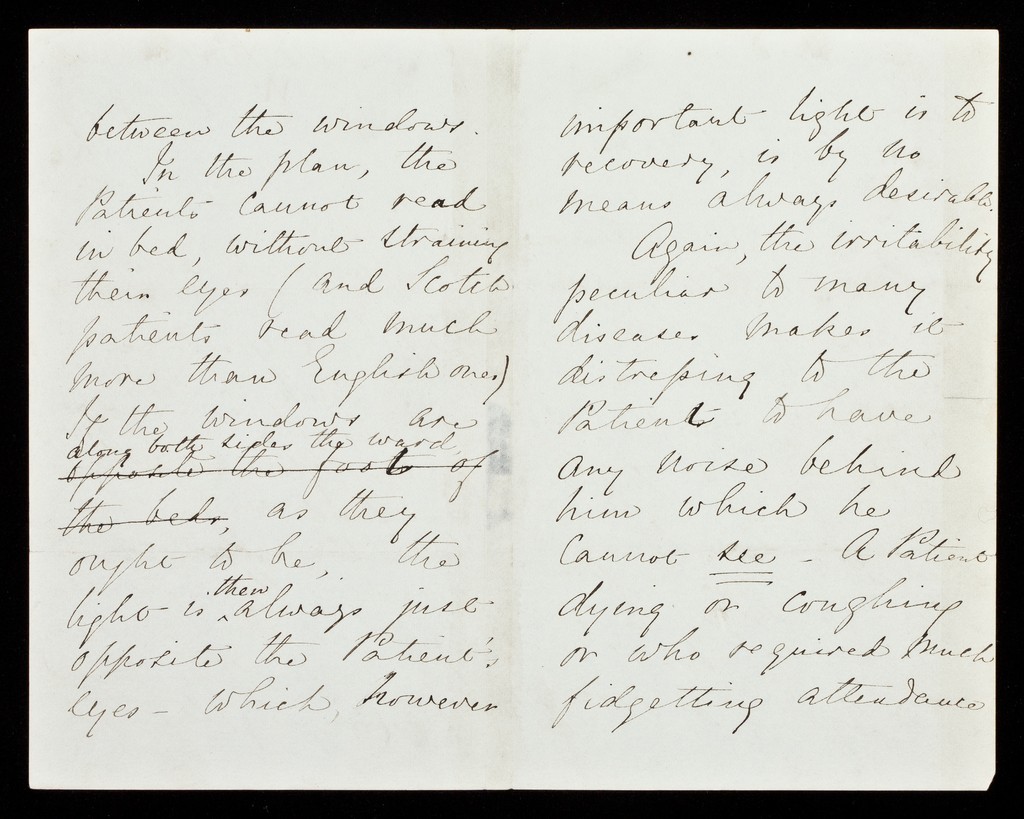 between the windows.
In the plan, the
Patients cannot read
in bed, without straining
their eyes (and Scotch
patients read much
more than English ones)
If the windows are
along both sides the ward,
opposite the foot of
the beds, as they
ought to be, the
then
light is always just
opposite the Patient's
eyes - which, however
important light is to
recovery, is by no
means always desirable.
Again, the irritability
peculiar to many
diseases makes it
distressing to the
Patient to have
any noise behind
him which he
cannot see - A Patient
dying or coughing
or who required much
fidgetting attendance